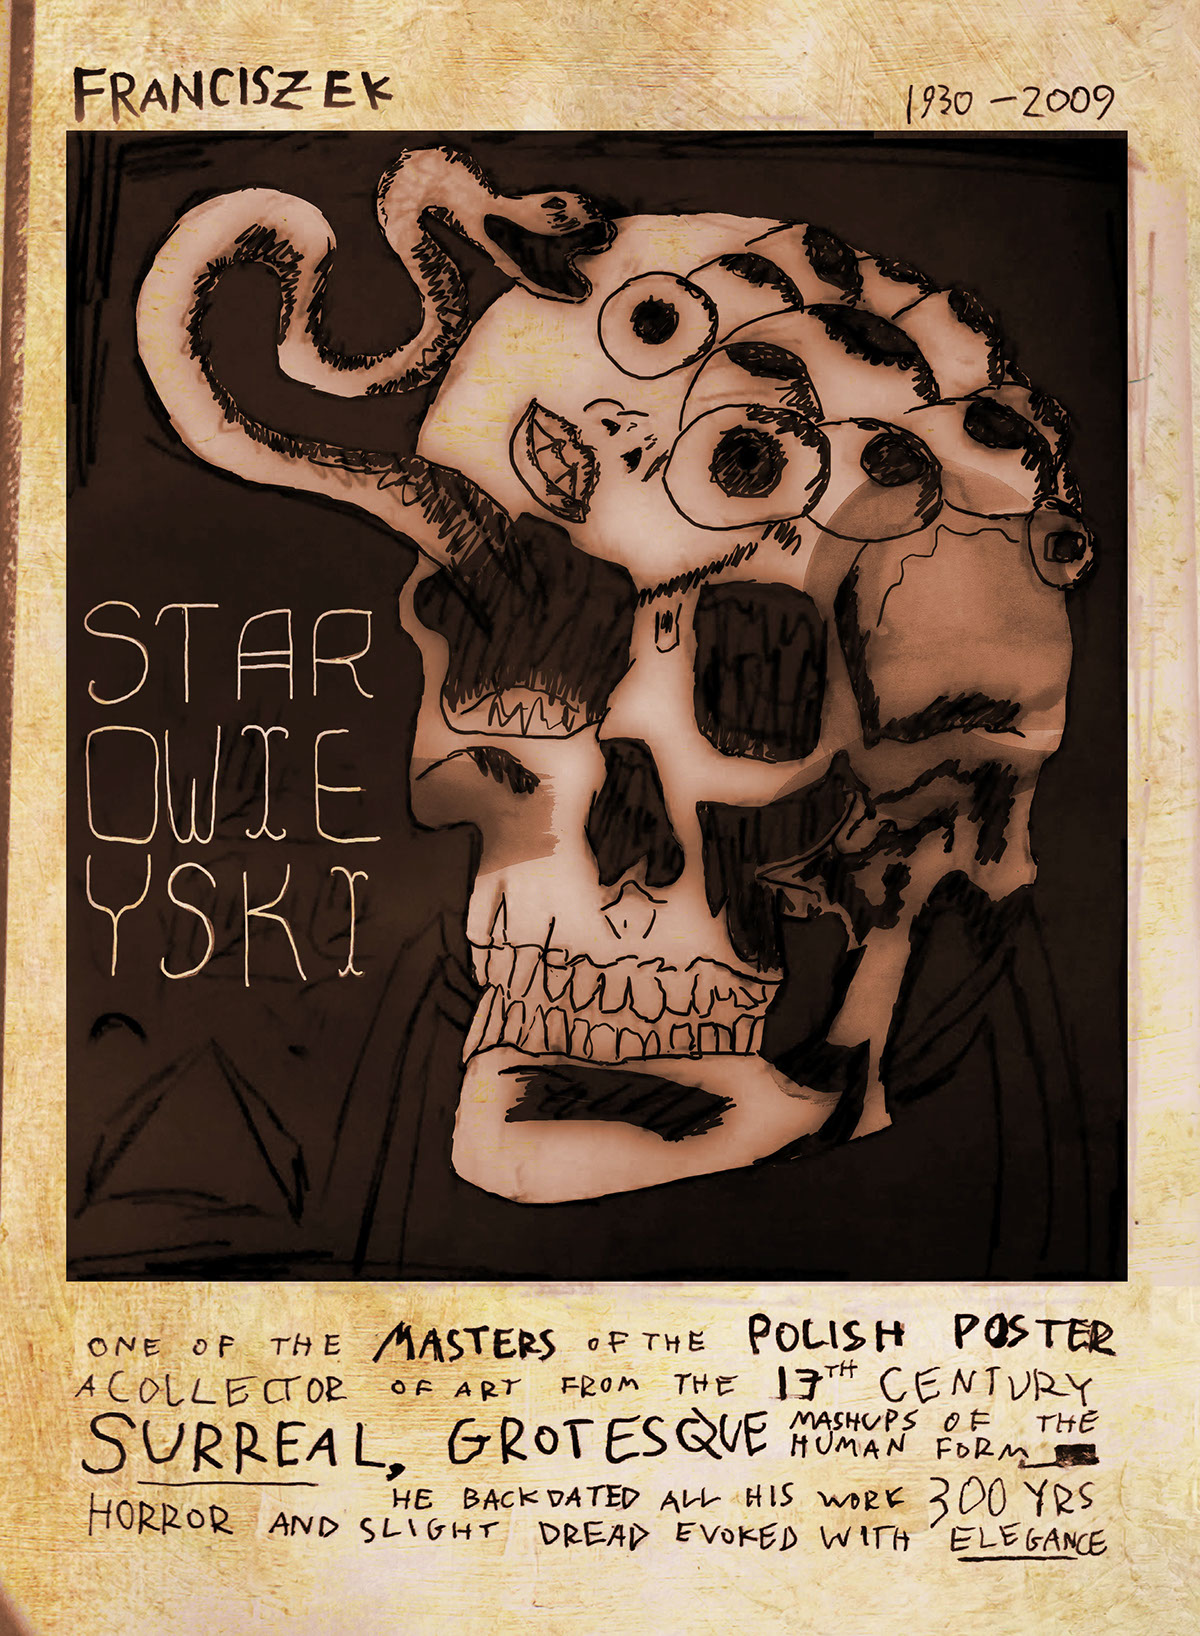 FRANCISZEK
1930 – 2009
STAR
OWIE
YSKI
ONE OF THE MASTERS OF THE POLISH POSTER
A COLLECTOR OF ART FROM THE 17TH CENTURY
SURREAL, GROTESQUE MASHUPS OF THE
HUMAN FORM
HE BACKDATED ALL HIS WORK 300 YRS
HORROR AND SLIGHT DREAD EVOKED WITH ELEGANCE